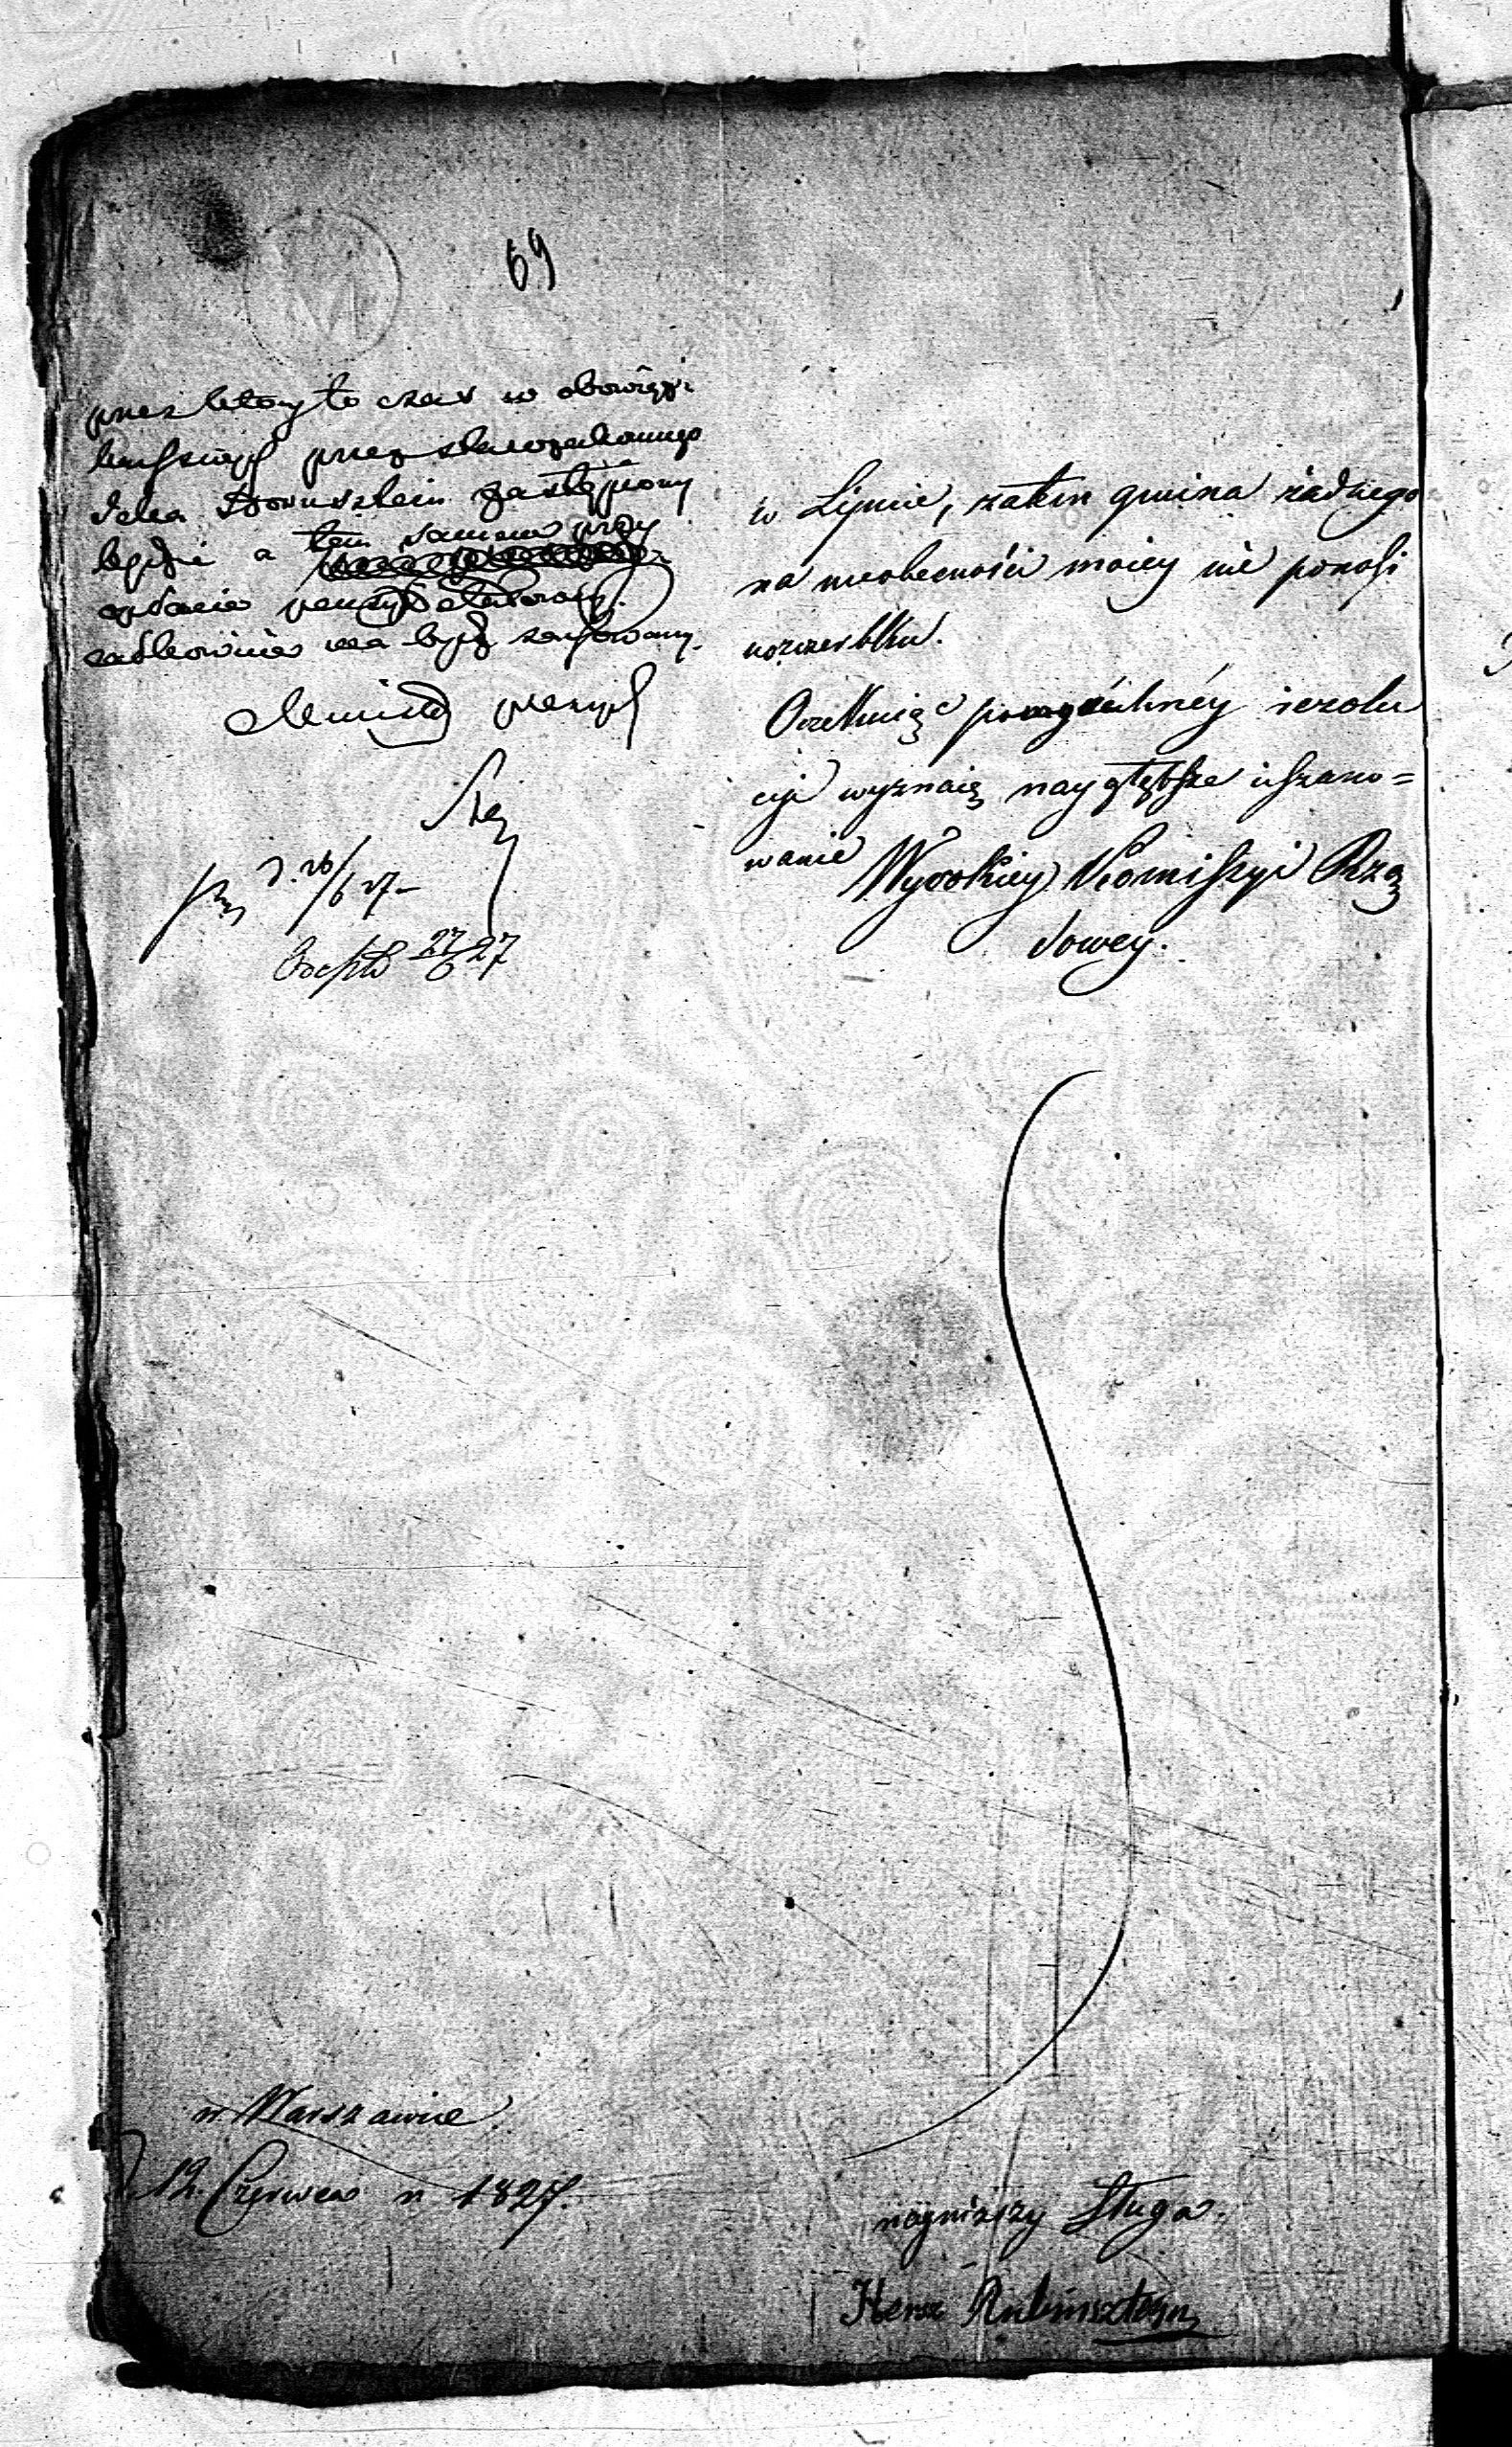 69
przez który to czas w obowiąz
kach swych przez starozakonnego
Icka Bornsztein zastąpiony
będzie a tem samem przy
zachowany.
Minister prezyd
d. 26/6 27
27/6 27
w Lipnie, zatem gmina żadnego
na nieobecności moiey nie ponosi
uszczerbku.
Oczekuiąc pomyślnéy rezolu
cyi wyznaię naygłębsze uszano=
wanie Wysokiey Kommissyi Rzą
dowey.
w Warszawie
d. 12. Czerwca r. 1827.
nayniższy Sługa.
Hersz Rubinsztein